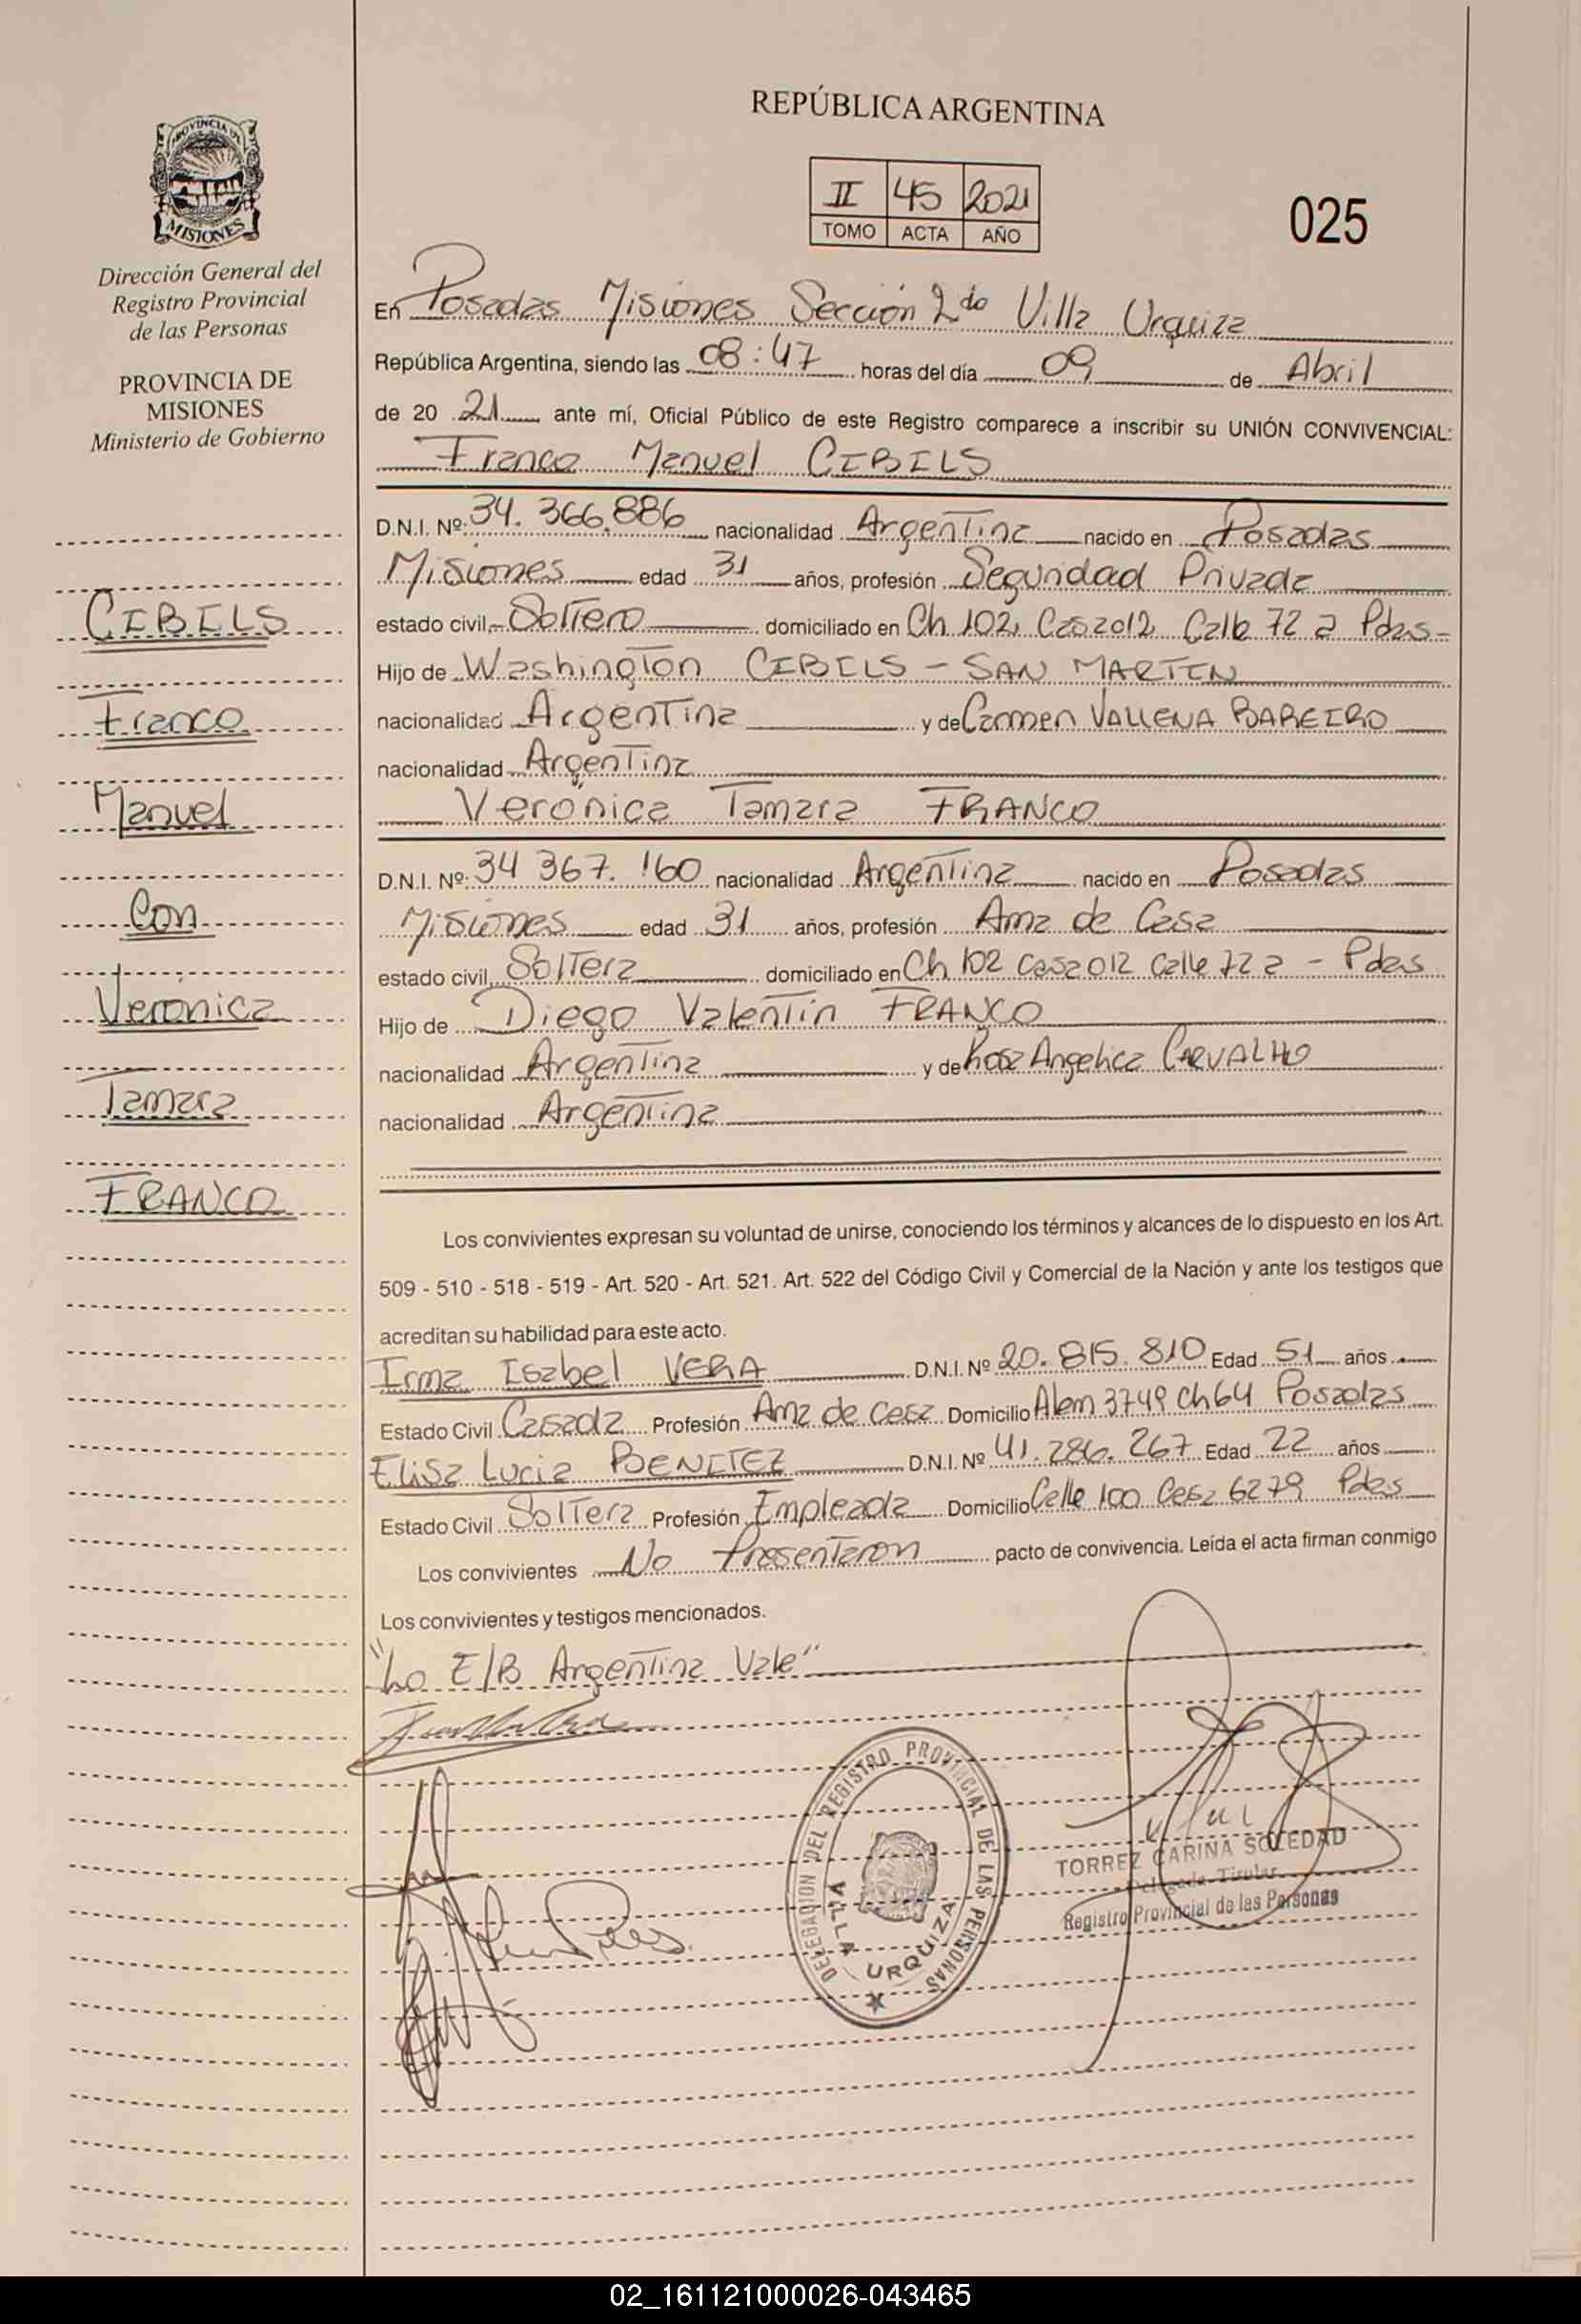 REPÚBLICA ARGENTINA
II 45 2021
TOMO ACTA AÑO
025
PROVINCIA DE
MISIONES
Dirección General del
Registro Provincial
de las Personas
PROVINCIA DE
MISIONES
Ministerio de Gobierno
CIBILS
Franco
Manuel
Con
Verónica
Tamara
FRANCO
En Posadas Misiones Sección 2da Villa Urquiza
República Argentina, siendo las 08:47 horas del día 09 de Abril
de 20 21 ante mí, Oficial Público de este Registro comparece a inscribir su UNIÓN CONVIVENCIAL:
Franco Manuel CIBILS
D.N.I. Nº 34.366.886 nacionalidad Argentina nacido en Posadas
Misiones edad 31 años, profesión Seguridad Privada
estado civil Soltero domiciliado en Ch 102, Casa 012, Calle 72 a Pdas-
Hijo de Washington CIBILS - SAN MARTIN
nacionalidad Argentina y de Carmen VALLENA BAREIRO
nacionalidad Argentina
Verónica Tamara FRANCO
D.N.I. Nº 34 367. 160 nacionalidad Argentina nacido en Posadas
Misiones edad 31 años, profesión Ama de Casa
estado civil Soltera domiciliado en Ch 102 Casa 012 Calle 72 a - Pdas
Hijo de Diego Valentin FRANCO
nacionalidad Argentina y de Rosa Angelica CARVALHO
nacionalidad Argentina
Los convivientes expresan su voluntad de unirse, conociendo los términos y alcances de lo dispuesto en los Art.
509 - 510 - 518 - 519 - Art. 520 - Art. 521. Art. 522 del Código Civil y Comercial de la Nación y ante los testigos que
acreditan su habilidad para este acto.
Irma Isabel VERA D.N.I. Nº 20.815.810 Edad 51 años
Estado Civil Casada Profesión Ama de Casa Domicilio Alem 3749 Ch 64 Posadas
Elisa Lucia BENITEZ D.N.I. Nº 41.286.267 Edad 22 años
Estado Civil Soltera Profesión Empleada Domicilio Calle 100 Casa 6279 Pdas
Los convivientes No Presentaron pacto de convivencia. Leída el acta firman conmigo
Los convivientes y testigos mencionados.
"Lo E/B Argentina Vale"
DELEGACION DEL REGISTRO PROVINCIAL DE LAS PERSONAS
VILLA URQUIZA
TORREZ CARINA SOLEDAD
Delegada Titular
Registro Provincial de las Personas
02_161121000026-043465